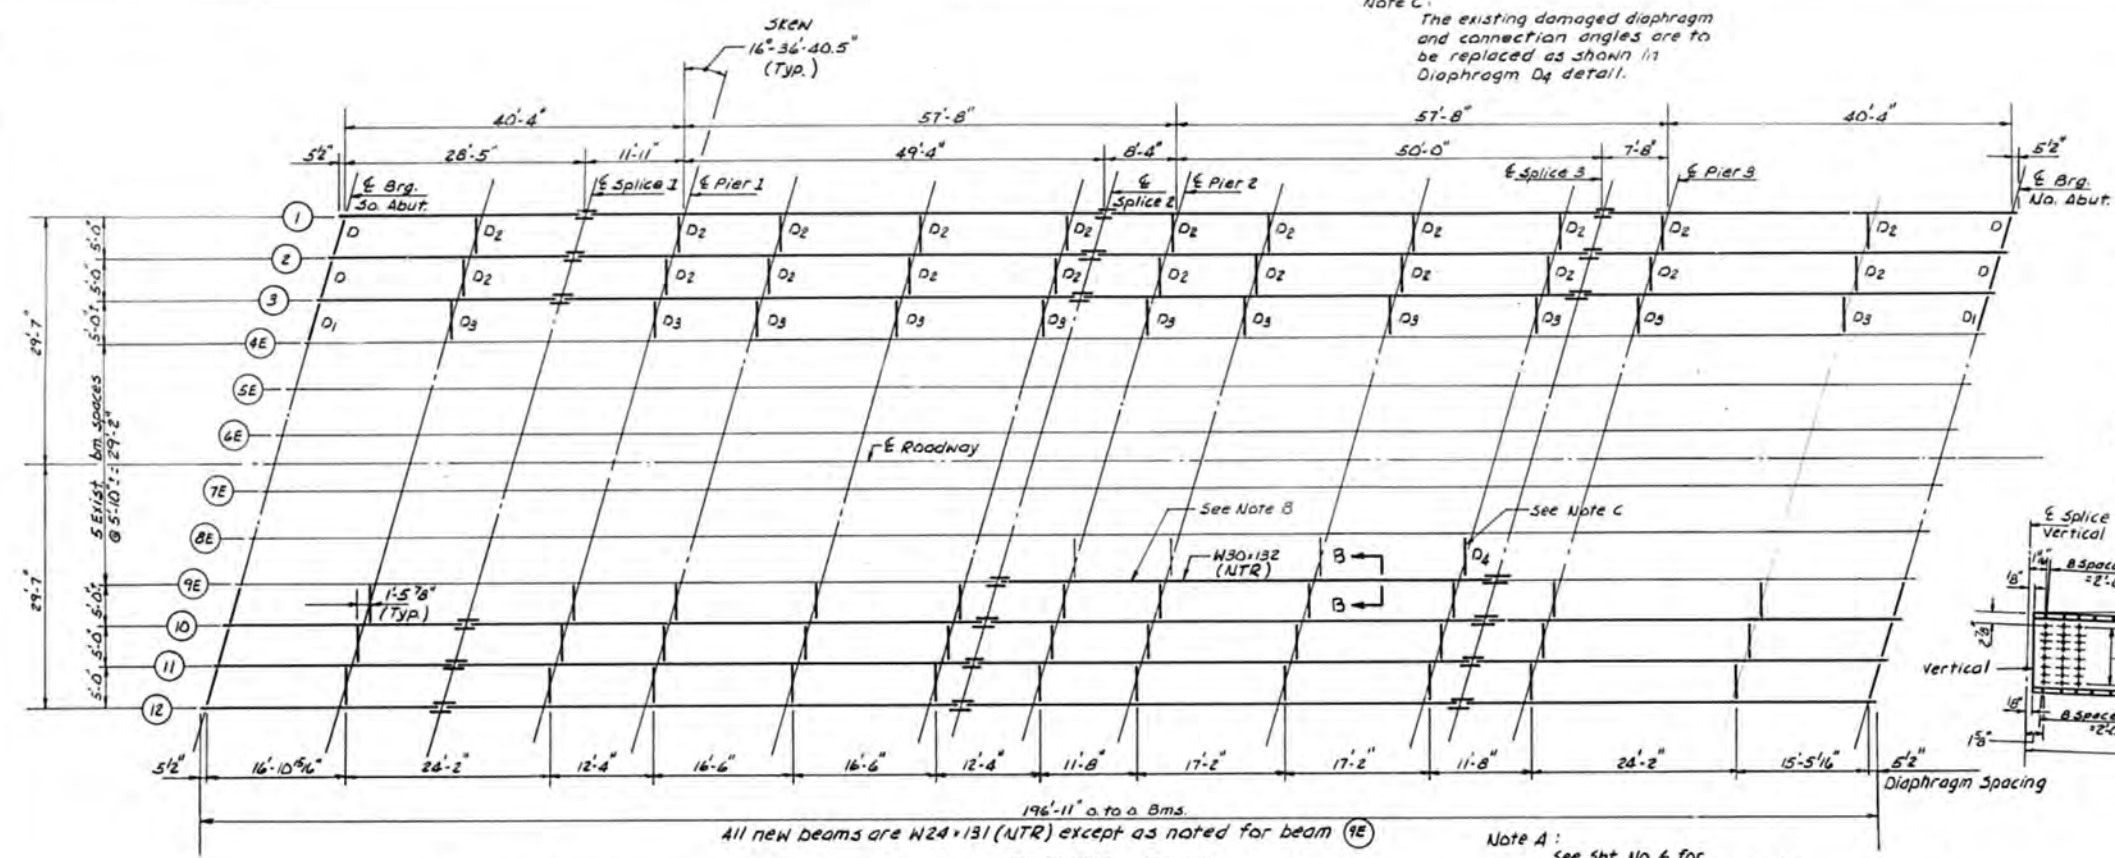 Note C:
The existing damaged diaphragm
and connection angles are to
be replaced as shown in
Diaphragm D4 detail.
Skew
16°-36'-40.5"
(Typ.)
40'-4" 57'-8" 57'-8" 40'-4"
5½" 28'-5" 11'-11" 49'-4" 8'-4" 50'-0" 7'-8" 5½"
℄ Brg.
So. Abut.
℄ Splice 1
℄ Pier 1
℄
Splice 2
℄ Pier 2
℄ Splice 3
℄ Pier 3
℄ Brg.
No. Abut.
1 D D2 D2 D2 D2 D2 D2 D2 D2 D2 D2 D2 D
2 D D2 D2 D2 D2 D2 D2 D2 D2 D2 D2 D2 D
3 D1 D3 D3 D3 D3 D3 D3 D3 D3 D3 D3 D3 D1
4E
5E
6E
℄ Roadway
7E
8E
9E
10
11
12
29'-7"
29'-7"
5'-0"
5'-0"
5'-0"±
5 Exist. bm. spaces
@ 5'-10"± = 29'-2"
5'-0"±
5'-0"
5'-0"
See Note B
See Note C
W30x132
(NTR)
B
B
D4
1'-5⅞"
(Typ.)
℄ Splice
Vertical
Vertical
5½" 16'-10 15/16" 24'-2" 12'-4" 16'-6" 16'-6" 12'-4" 11'-8" 17'-2" 17'-2" 11'-8" 24'-2" 15'-5 1/16" 5½"
Diaphragm Spacing
196'-11" o. to o. Bms.
All new beams are W24x131 (NTR) except as noted for beam 9E
Note A:
See Sht. No. 6 for